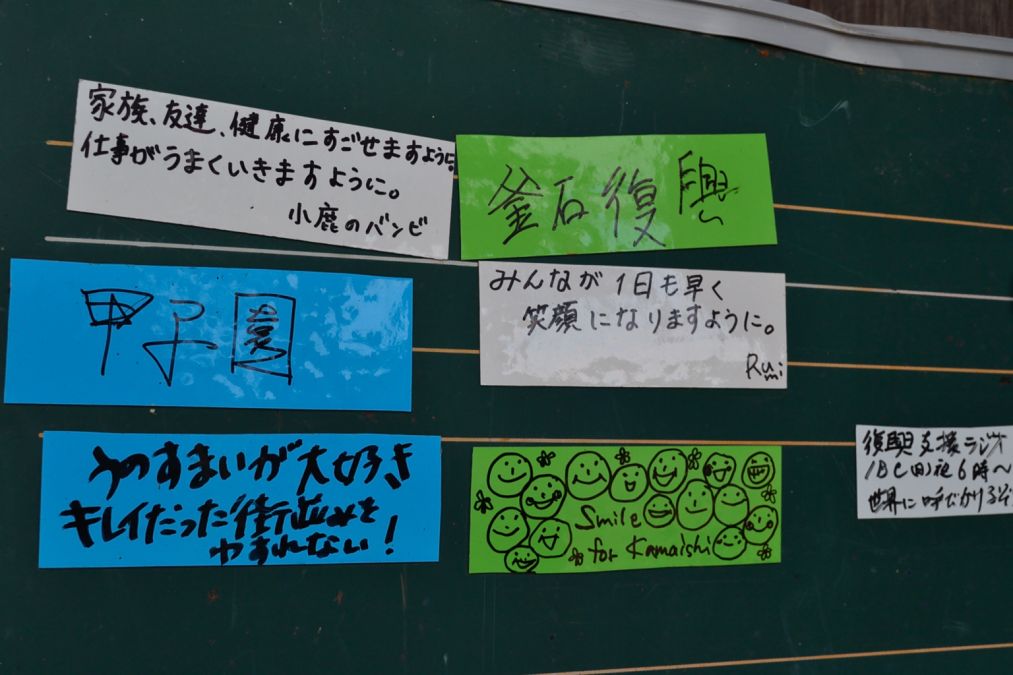 家族、友達、健康にすごせますように。
仕事がうまくいきますように。
小鹿のバンビ
釜石復興
甲子園
みんなが1日も早く
笑顔になりますように。
Rumi
うのすまいが大好き
キレイだった街並みを
わすれない!
Smile
for Kamaishi
復興支援ラジオ
18日(日)夜6時〜
世界に呼びかけるぞ